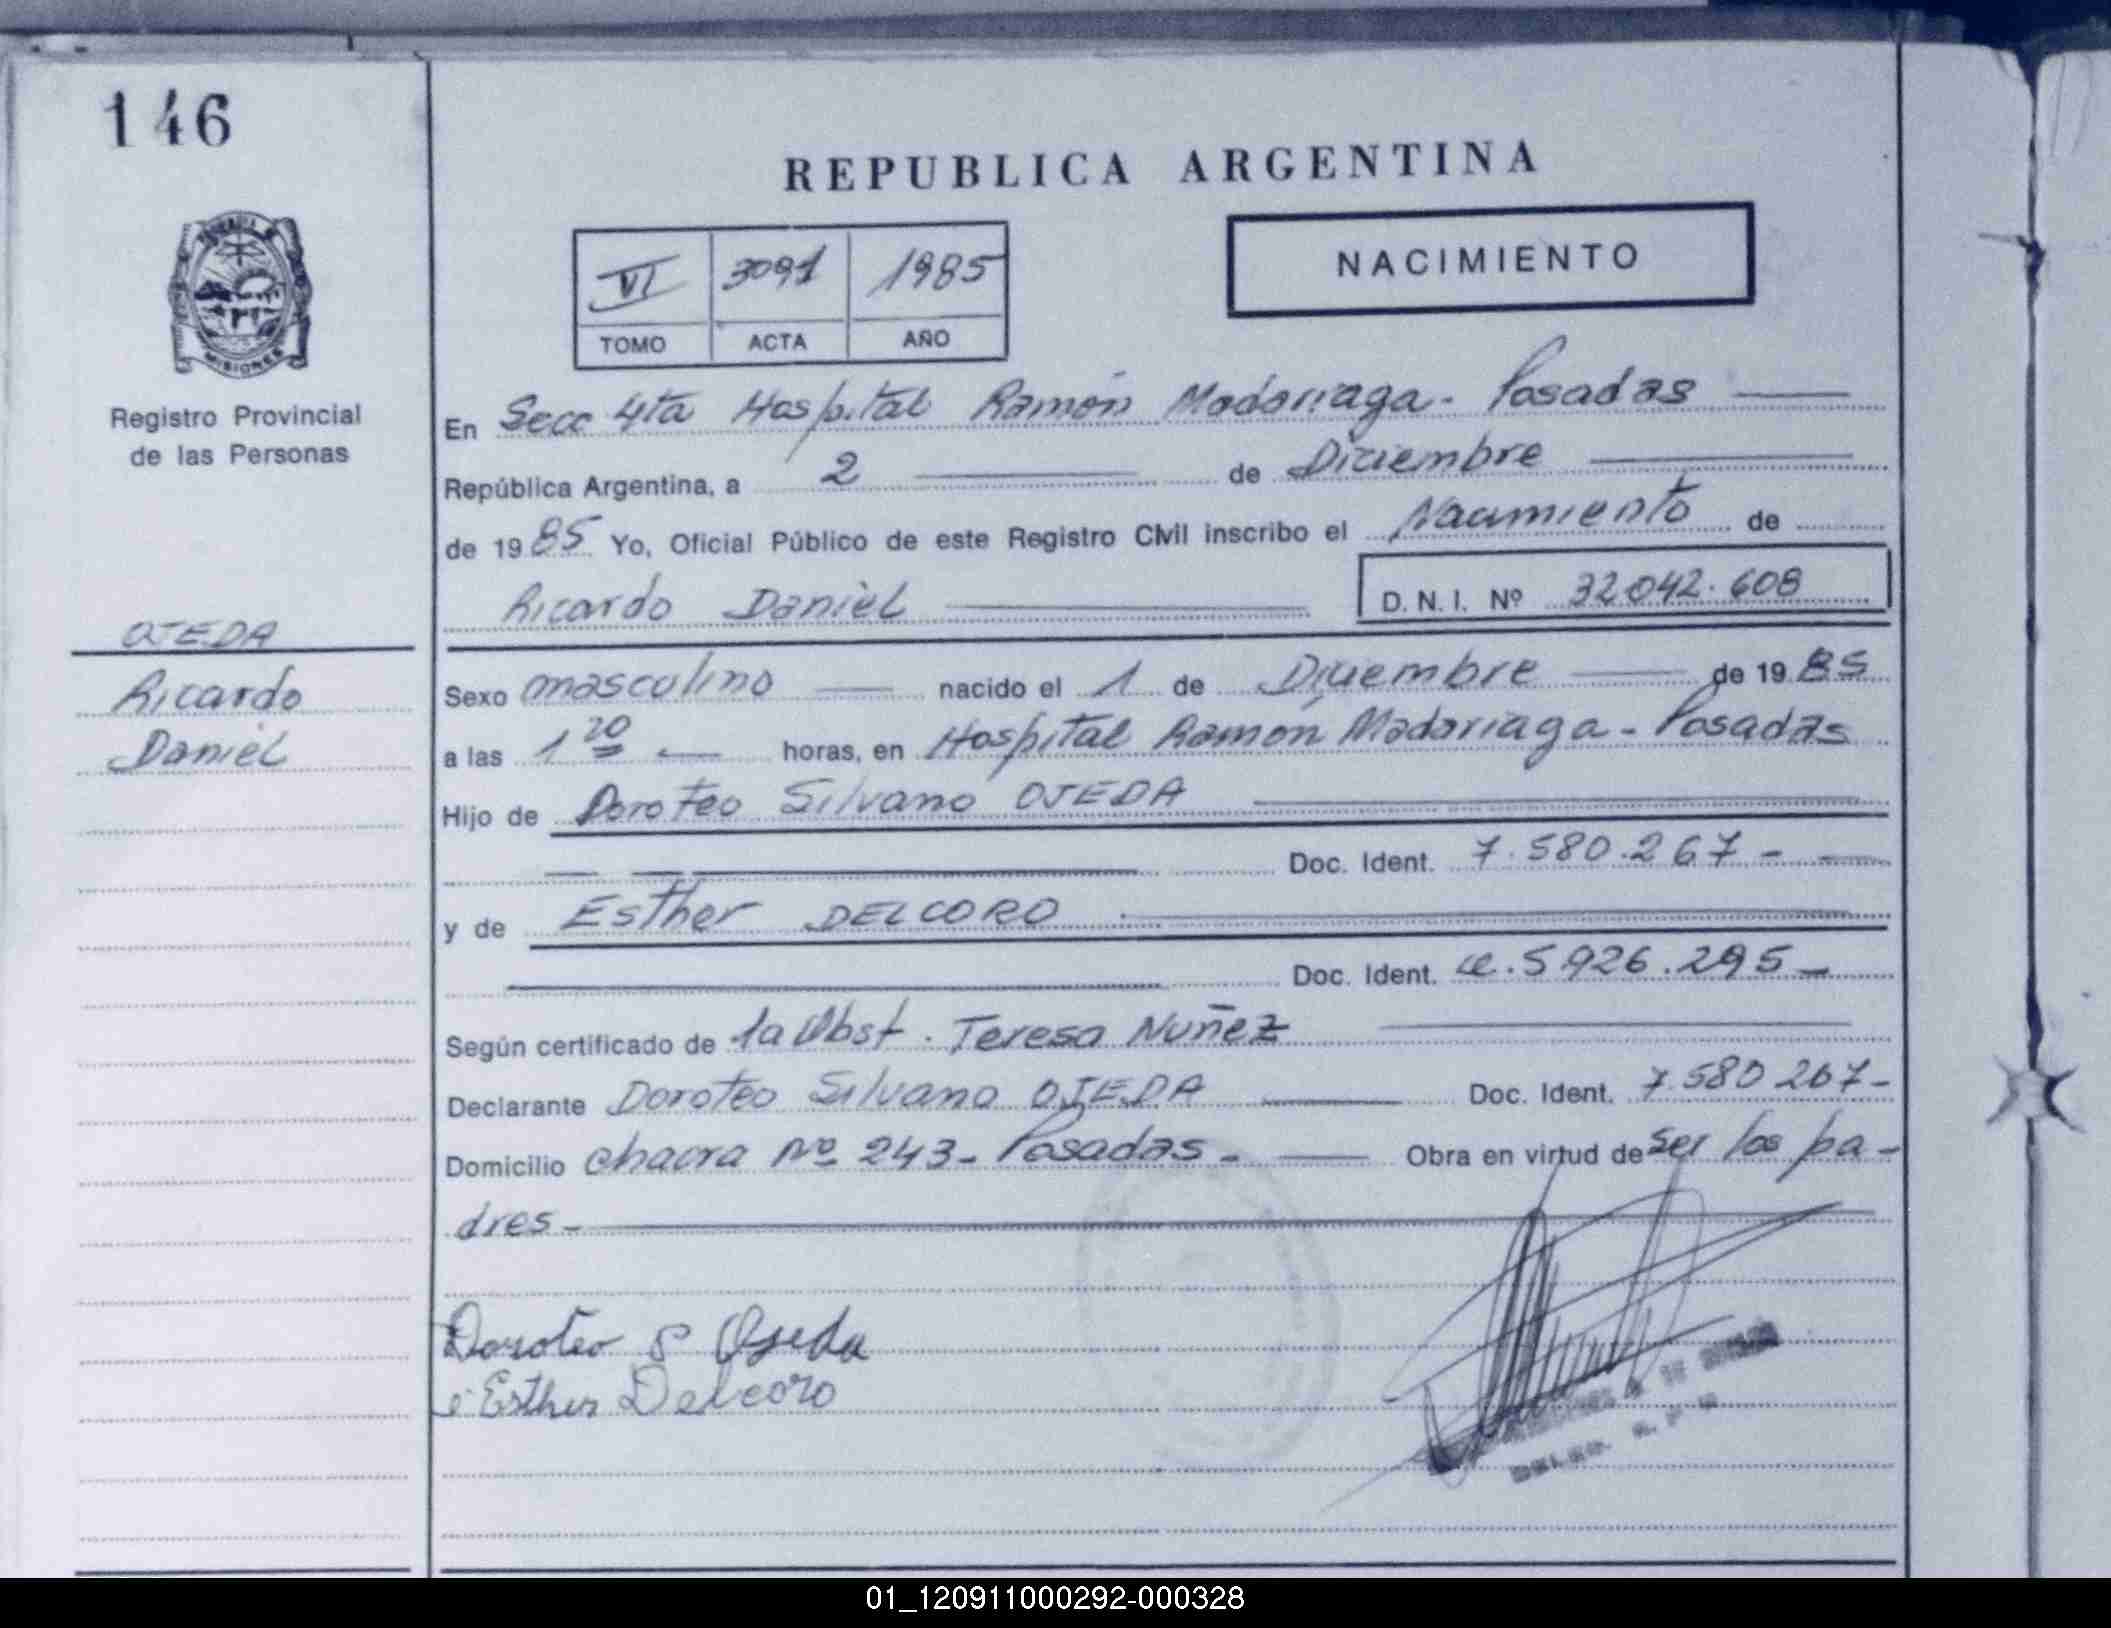 146
REPUBLICA ARGENTINA
VI 3091 1985
TOMO ACTA AÑO
NACIMIENTO
MISIONES
Registro Provincial
de las Personas
OJEDA
Ricardo
Daniel
En Secc 4ta Hospital Ramón Madariaga - Posadas
República Argentina, a 2 de Diciembre
de 1985 Yo, Oficial Público de este Registro Civil inscribo el Nacimiento de
Ricardo Daniel D.N.I. Nº 32042.608
Sexo masculino nacido el 1 de Diciembre de 1985
a las 1 20 horas, en Hospital Ramón Madariaga - Posadas
Hijo de Doroteo Silvano OJEDA
Doc. Ident. 7.580.267 -
y de Esther DELCORO
Doc. Ident. ce. 5926.295 -
Según certificado de la Obst. Teresa Nuñez
Declarante Doroteo Silvano OJEDA Doc. Ident. 7.580267 -
Domicilio chacra Nº 243 - Posadas - Obra en virtud de ser los pa-
dres -
Doroteo S Ojeda
Esther Delcoro
01_120911000292-000328